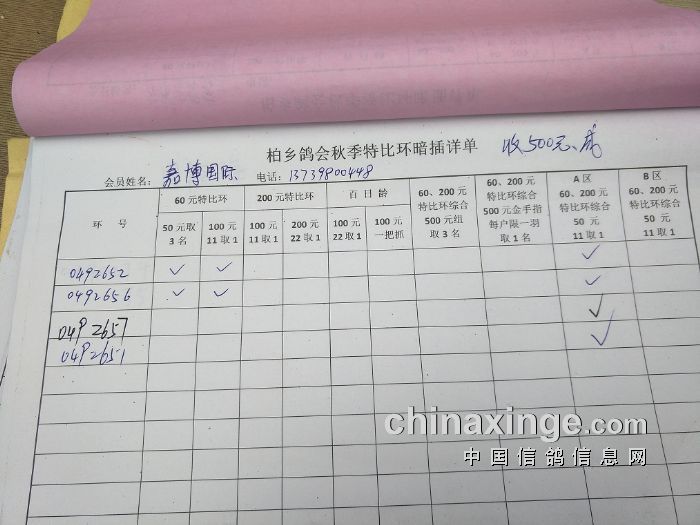 柏乡鸽会秋季特比环暗插详单 收500元、
会员姓名： 嘉博国际 电话：13739800448
环 号 60元特比环 200元特比环 百日龄 60、200元特比环综合500元组取3名 60、200元特比环综合500元金手指每户限一羽取1名 A区60、200元特比环综合50元11取1 B区60、200元特比环综合50元11取1
50元取3名 100元11取1 100元11取1 200元22取1 100元22取1 100元一把抓
0492652 ✓ ✓ ✓
0492656 ✓ ✓ ✓
0492657 ✓
0492651 ✓
chinaxinge.com
中国信鸽信息网